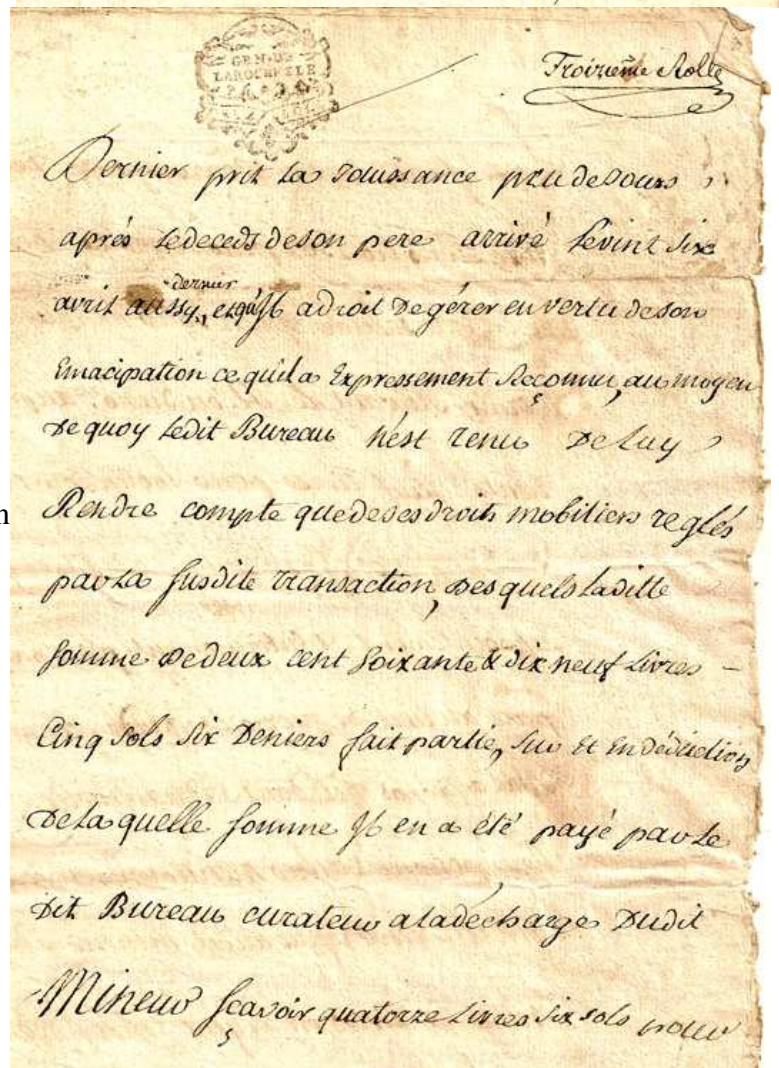 GEN. DE
LAROCHELLE
Troizieme Rolle
Dernier prit La Jouissance peu de Jours
aprés Ledeceds de son pere arrivé Levint Six
dernier
avril aussy, et qu'Il a droit De gérer en vertu de son
Emacipation ce quil a Expressement Reçonnu, au moyen
De quoy Ledit Bureau n'est tenu De Luy
Rendre compte que de ses droits mobiliers reglés
par La Susdite transaction, Des quels Laditte
Somme De deux cent Soixante & dix neuf Livres -
Cinq Sols Six Deniers fait partie, Sur Et En déduction
De La quelle Somme Il en a été payé par Le
Dit Bureau curateur a La décharge Dudit
Mineur Sçavoir quatorze Livres Six Sols pour
n